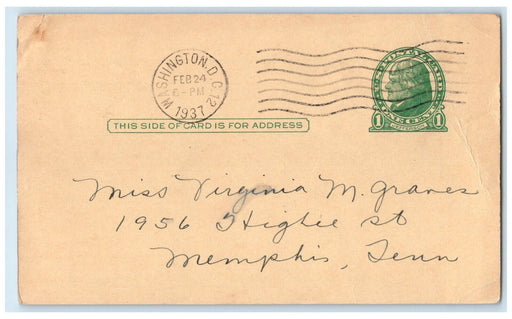 WASHINGTON, D.C. 12
FEB 24
6-PM
1937
THIS SIDE OF CARD IS FOR ADDRESS
1 JEFFERSON 1
ONE CENT
Miss Virginia M. Graves
1956 Higbee st
Memphis, Tenn